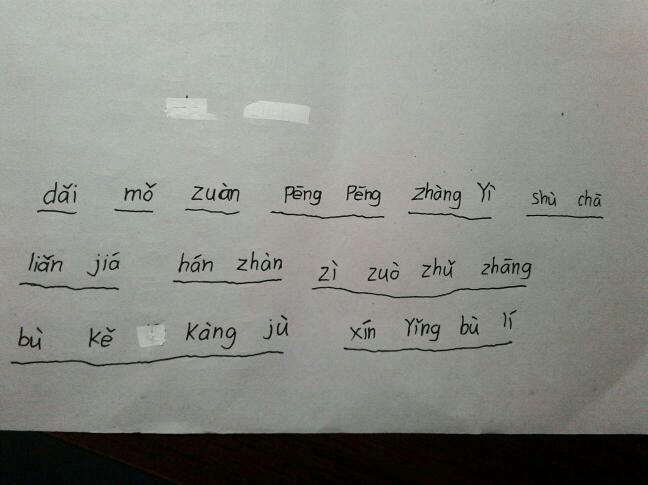 dǎi mǒ zuàn Pēng Pēng zhàng Yì shù chā
liǎn jiá hán zhàn zì zuò zhǔ zhāng
bù kě kàng jù xín Yǐng bù lí